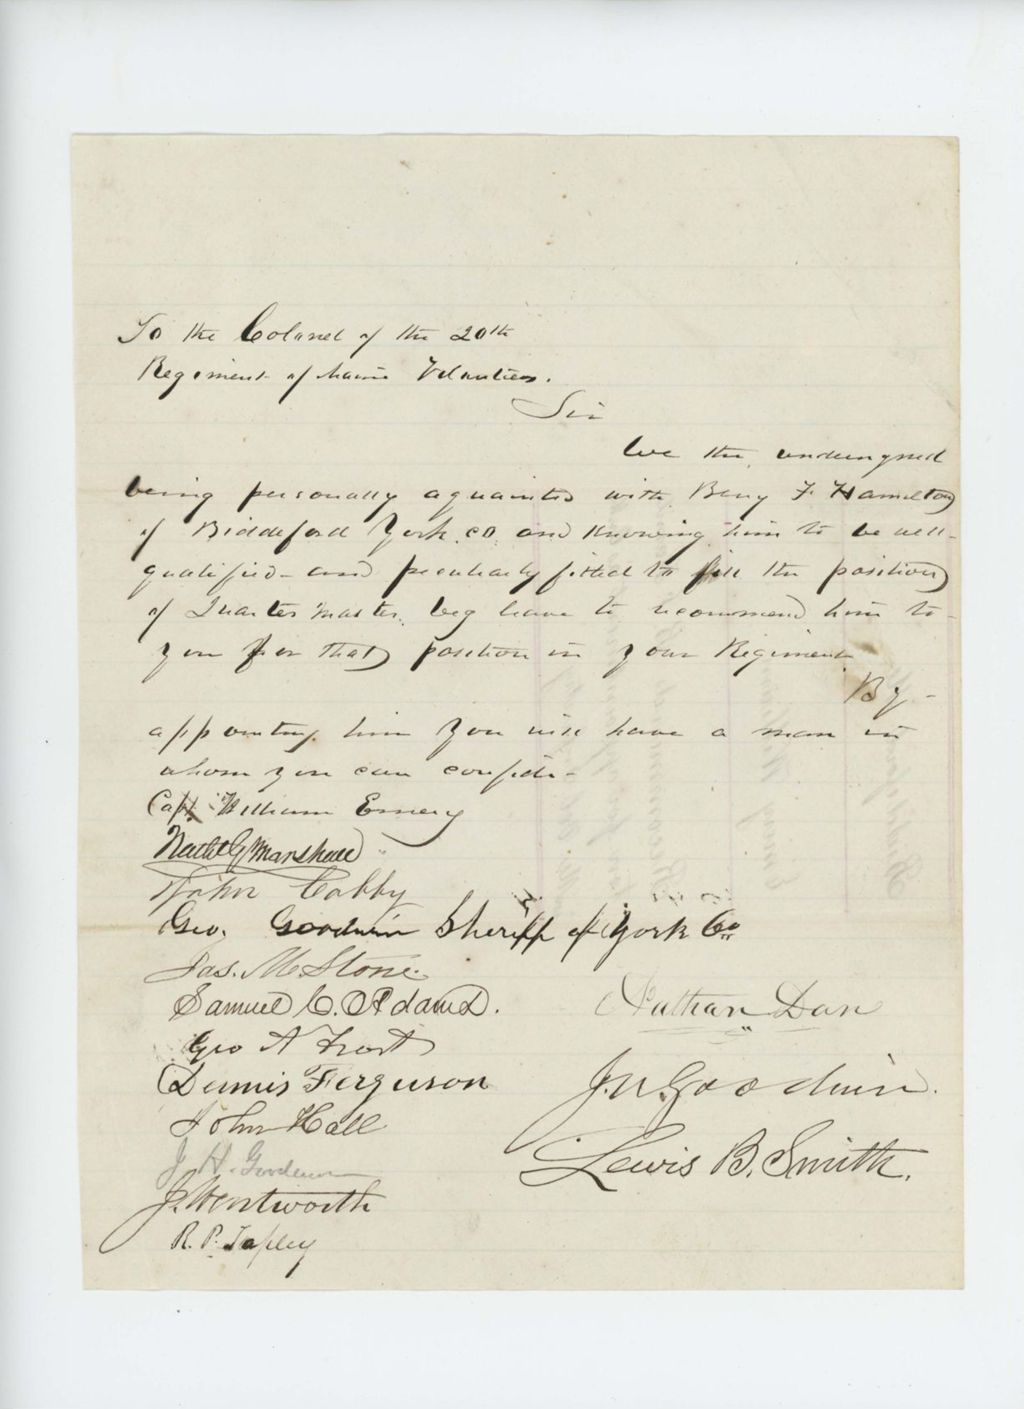 To the Colonel of the 20th
Regiment of Maine Volunteers.
Sir
We the undersigned
being personally aquainted with Benj F. Hamilton
of Biddeford York co. and knowing him to be well
qualified and peculiarly fitted to fill the position
of Quarter Master, beg leave to recommend him to
you for that position in your Regiment
By
appointing him you will have a man in
whom you can confide
Capt William Emery
Nathl G Marshall
John Cobby
Geo. Goodwin Sheriff of York Co
Jas. M. Stone.
Samuel C. Adams.
Nathan Dan
Geo A Frost
Dennis Ferguson
J. N. Goodwin.
John Hall
J H. Goodwin
Lewis B. Smith.
J. Wentworth
R. P. Tapley